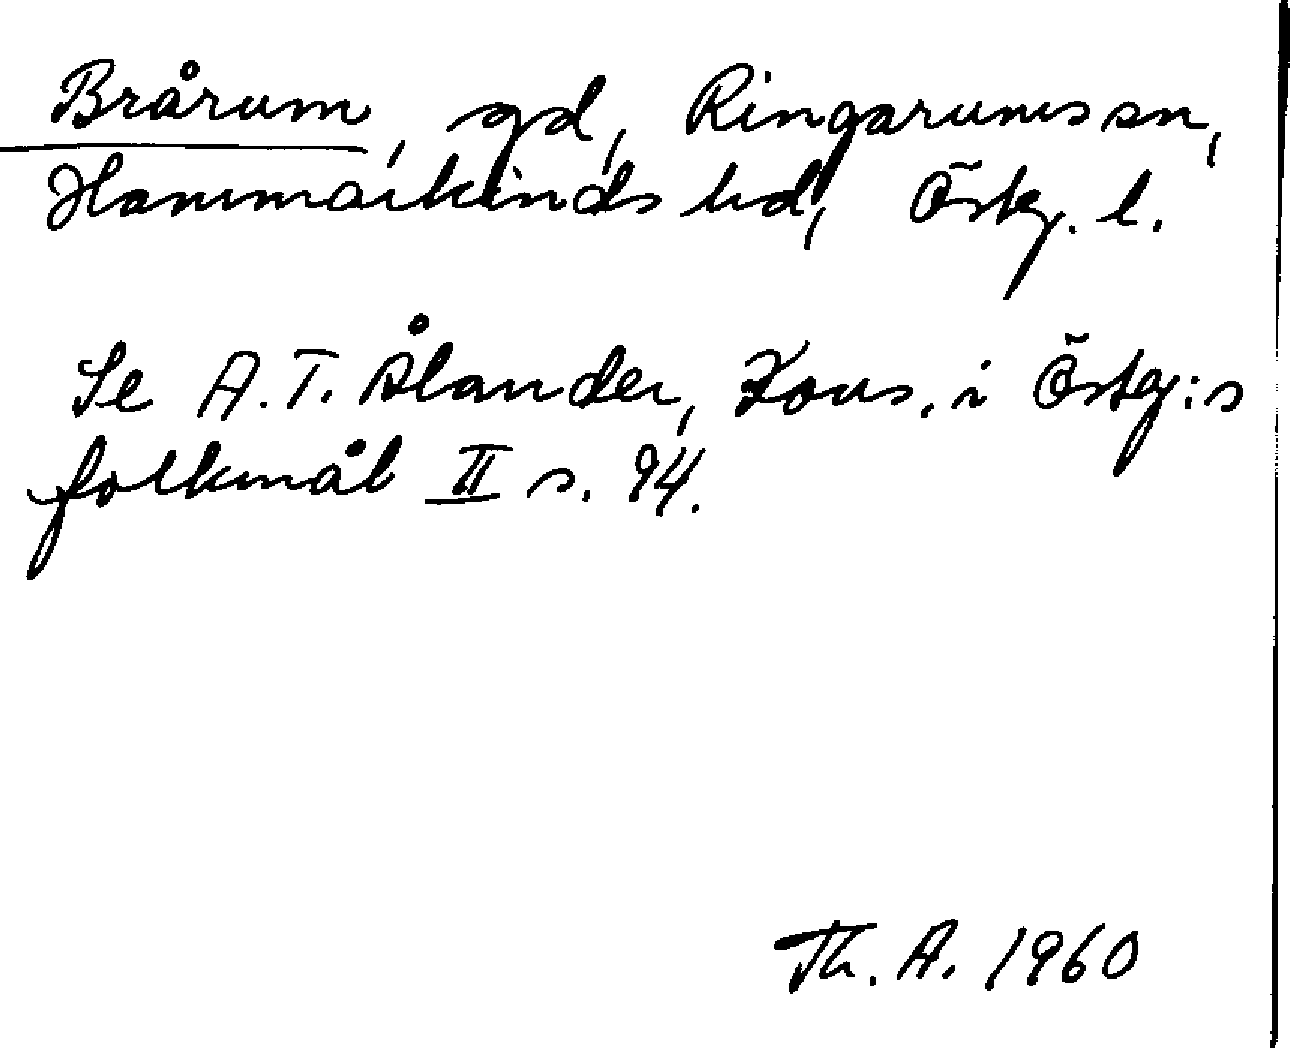 Brårum, gd, Ringarums sn,
Hammarkinds hd, Östg. l.
Se A. T. Ålander, Kons. i Östg:s
folkmål II s. 94.
Th. A. 1960